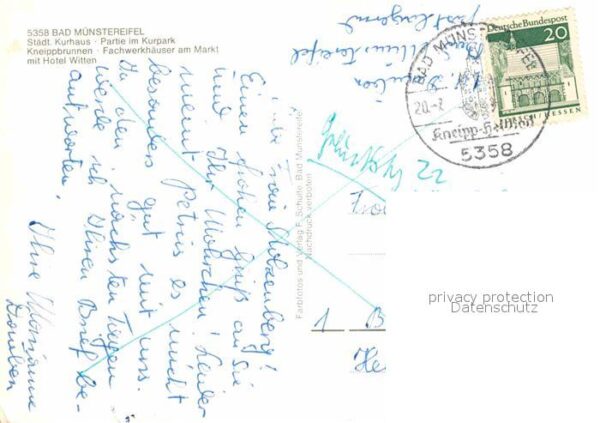 5358 BAD MÜNSTEREIFEL
Städt. Kurhaus · Partie im Kurpark
Kneippbrunnen · Fachwerkhäuser am Markt
mit Hotel Witten
Deutsche Bundespost
20
HESSEN
BAD MÜNSTEREIFEL
20.-7.
Kneipp-Heilbad
5358
Bad Münstereifel
postlagernd
22
Liebe Frau
Einen frohen Gruß an Sie
und Ihr Leider
meint Petrus es nicht
besonders gut mit uns.
In den nächsten Tagen
werde ich Ihren Brief be-
antworten.
Ihre
Farbfotos und Verlag F. Schulte, Bad Münstereifel
Nachdruck verboten
1 B
He
privacy protection
Datenschutz